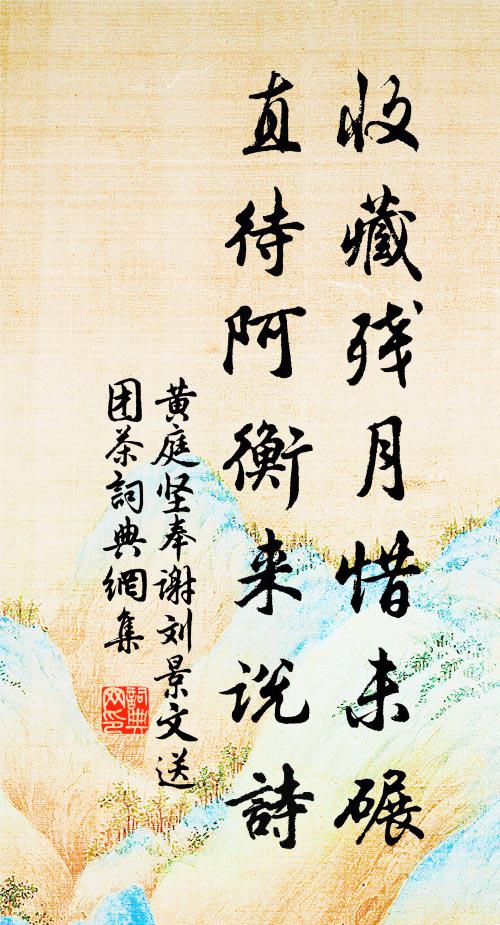 收藏残月惜未碾
直待阿衡来说詩
黄庭坚奉谢刘景文送
团茶詞典網集
詞典網印